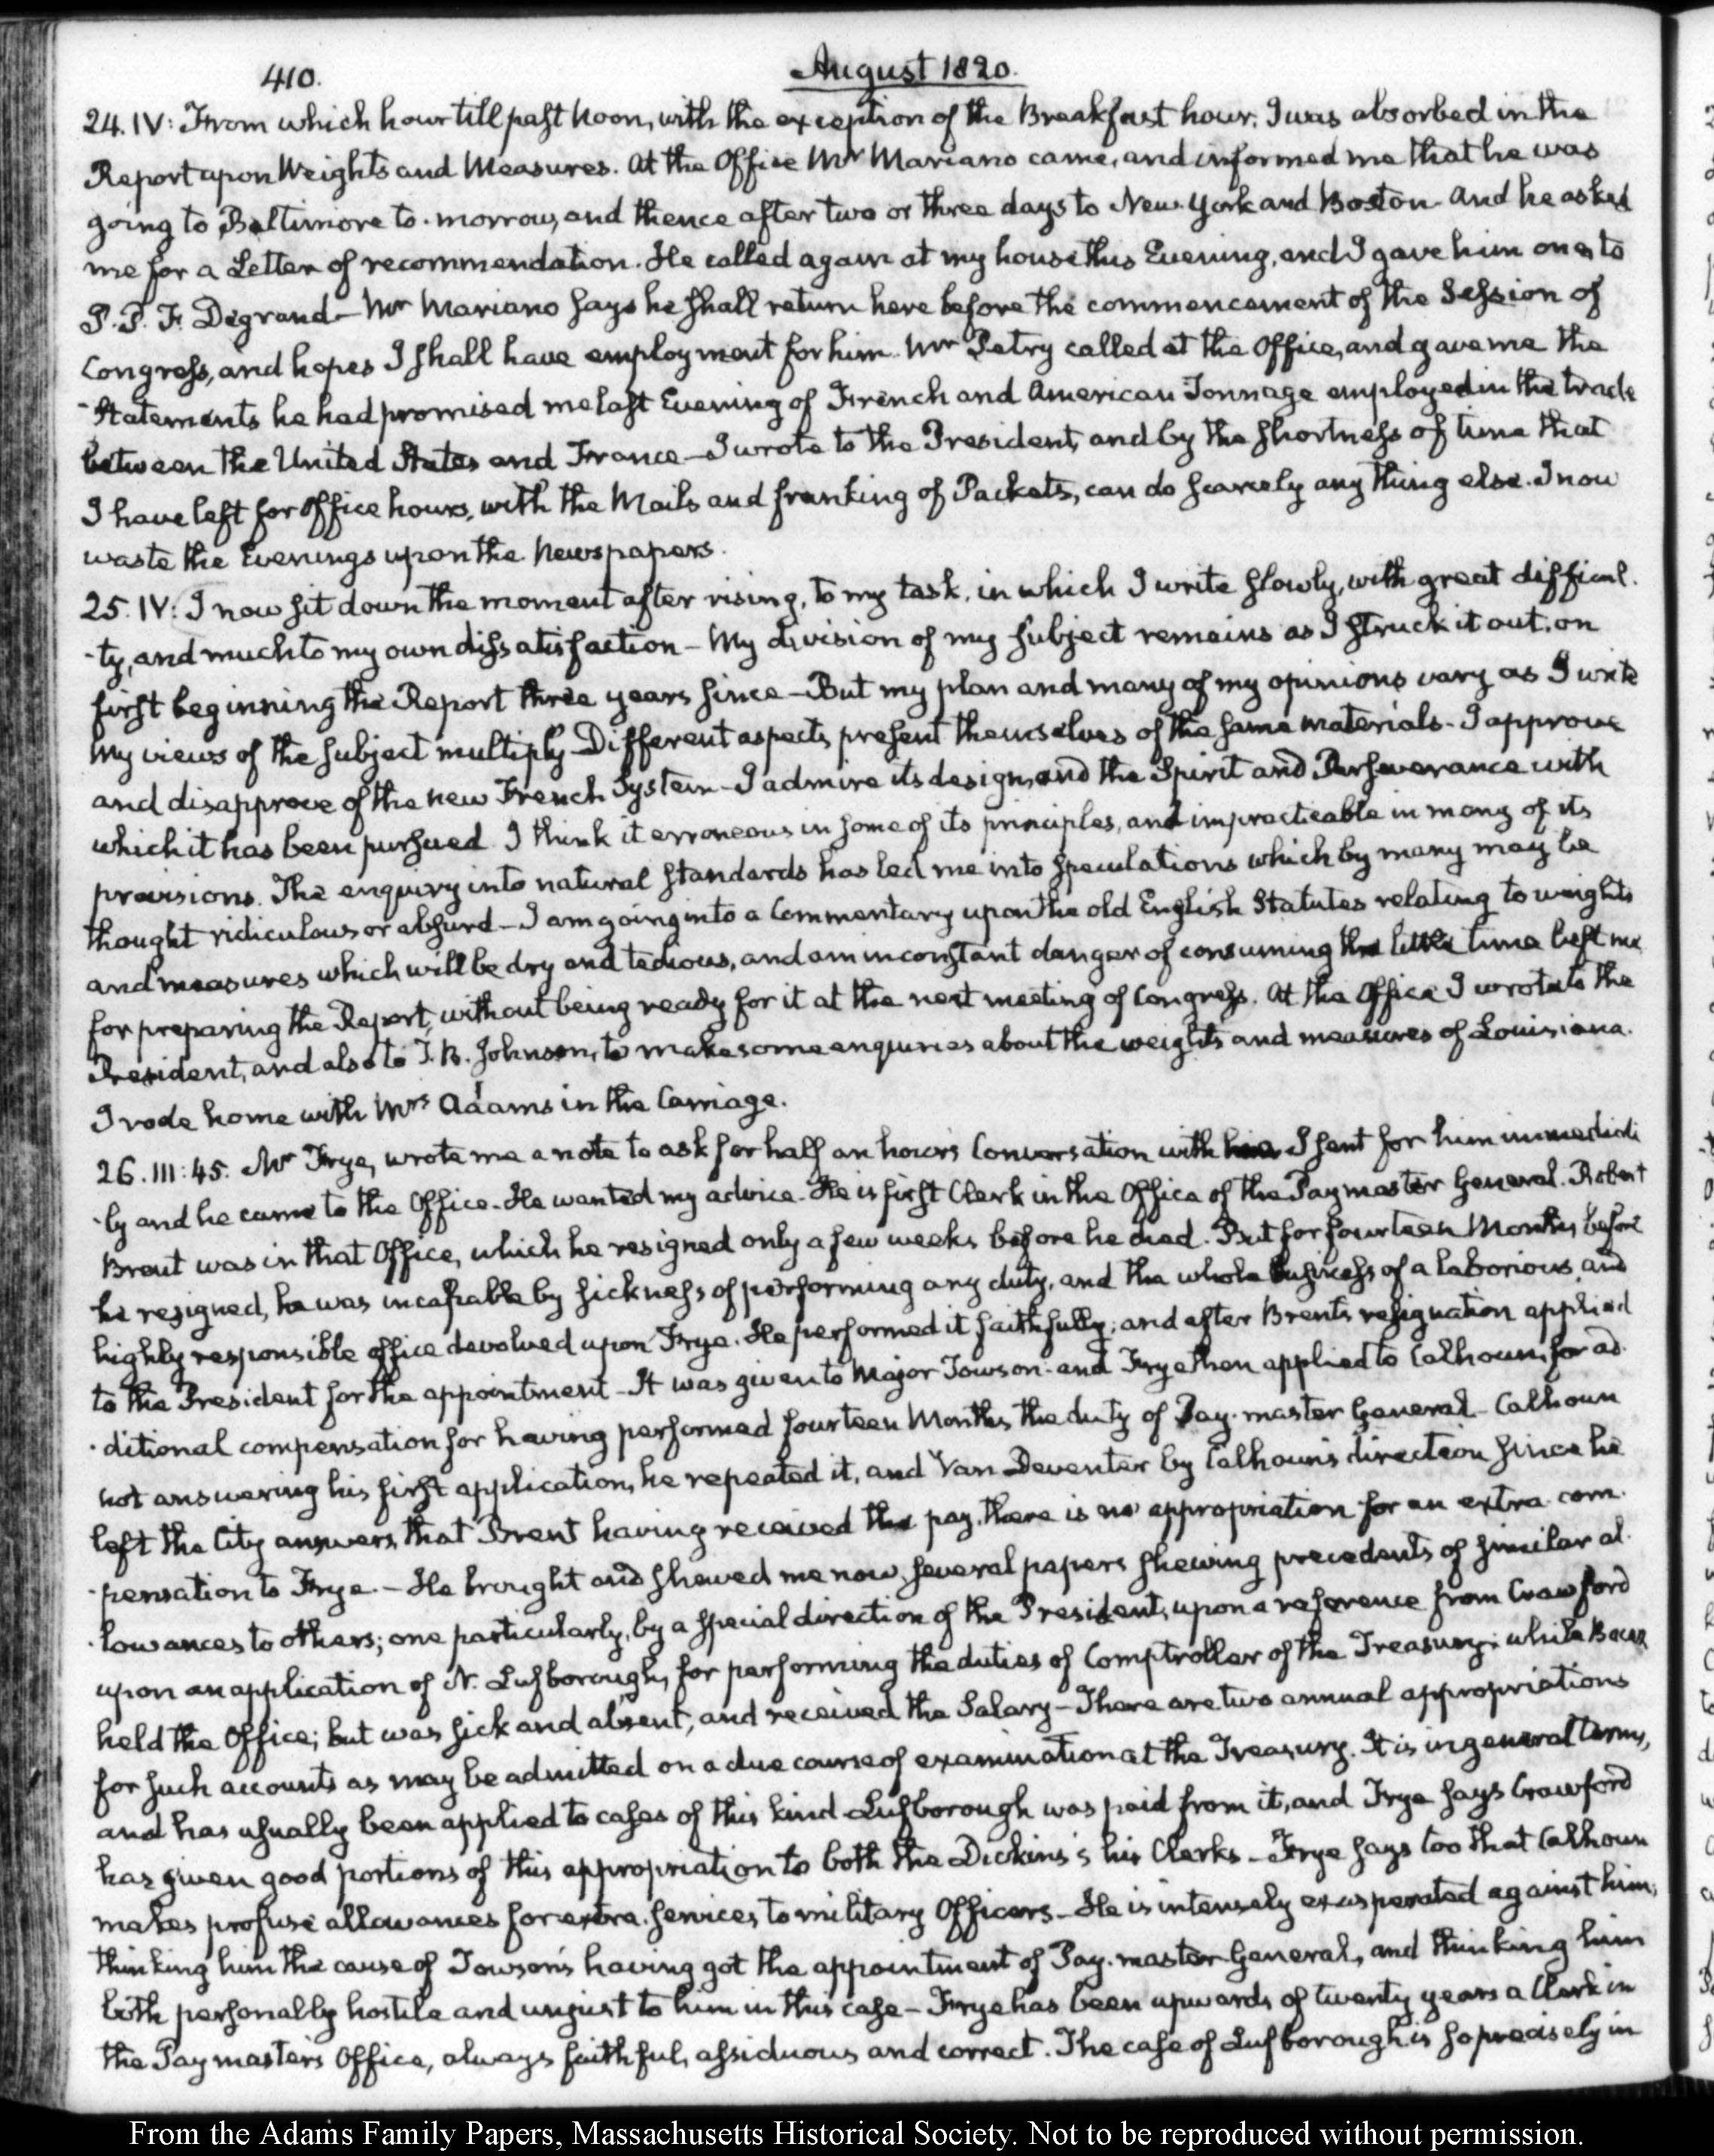 410. August 1820.
24. IV: From which hour till past Noon, with the exception of the Breakfast hour, I was absorbed in the
Report upon Weights and Measures. At the Office Mr Mariano came, and informed me that he was
going to Baltimore to-morrow, and thence after two or three days to New-York and Boston. And he asked
me for a Letter of recommendation. He called again at my house this Evening, and I gave him one, to
P. P. F. Degrand— Mr Mariano says he shall return here before the commencement of the Session of
Congress, and hopes I shall have employment for him. Mr Petry called at the Office, and gave me the
-Statements he had promised me last Evening of French and American Tonnage employed in the trade
between the United States and France—I wrote to the President, and by the shortness of time that
I have left for Office hours, with the Mails and franking of Packets, can do scarcely any thing else. I now
waste the Evenings upon the Newspapers.
25. IV: I now sit down the moment after rising, to my task, in which I write slowly, with great difficul-
-ty, and much to my own dissatisfaction—My division of my subject remains as I struck it out, on
first beginning the Report three years since—But my plan and many of my opinions vary as I write
My views of the subject multiply—Different aspects present themselves of the same materials—I approve
and disapprove of the new French System—I admire its design, and the Spirit and Perseverance with
which it has been pursued. I think it erroneous in some of its principles, and impracticable in many of its
provisions. The enquiry into natural standards has led me into speculations which by many may be
thought ridiculous or absurd—I am going into a Commentary upon the old English Statutes relating to weights
and measures which will be dry and tedious, and am in constant danger of consuming the little time left me
for preparing the Report, without being ready for it at the next meeting of Congress. At the Office I wrote to the
President, and also to J. B. Johnson, to make some enquiries about the weights and measures of Louisiana.
I rode home with Mrs Adams in the Carriage.
26. III:45. Mr Frye, wrote me a note to ask for half an hour's Conversation with I sent for him immediate-
-ly and he came to the Office. He wanted my advice. He is first Clerk in the Office of the Paymaster General. Robert
Brent was in that Office, which he resigned only a few weeks before he died. But for fourteen Months before
he resigned, he was incapable by sickness of performing any duty, and the whole business of a laborious, and
highly responsible office devolved upon Frye. He performed it faithfully; and after Brent's resignation applied
to the President for the appointment—It was given to Major Towson: and Frye then applied to Calhoun, for ad-
-ditional compensation for having performed fourteen Months, the duty of Pay-master General—Calhoun
not answering his first application, he repeated it, and Van Deventer by Calhoun's direction since he
left the City answers, that Brent having received the pay, there is no appropriation for an extra-com-
-pensation to Frye.—He brought and shewed me now, several papers shewing precedents of similar al-
-lowances to others; one particularly, by a special direction of the President, upon a reference from Crawford
upon an application of N. Lufborough, for performing the duties of Comptroller of the Treasury; while Bacon
held the Office; but was sick and absent, and received the Salary—There are two annual appropriations
for such accounts as may be admitted on a due course of examination at the Treasury. It is in general terms,
and has usually been applied to cases of this kind—Lufborough was paid from it, and Frye says Crawford
has given good portions of this appropriation to both the Dickins's his Clerks—Frye says too that Calhoun
makes profuse allowances for extra-services to military Officers—He is intensely exasperated against him;
thinking him the cause of Towson's having got the appointment of Pay-master General, and thinking him
both personally hostile and unjust to him in this case—Frye has been upwards of twenty years a Clerk in
the Paymaster's Office, always faithful, assiduous and correct. The case of Lufborough is so precisely in
From the Adams Family Papers, Massachusetts Historical Society. Not to be reproduced without permission.